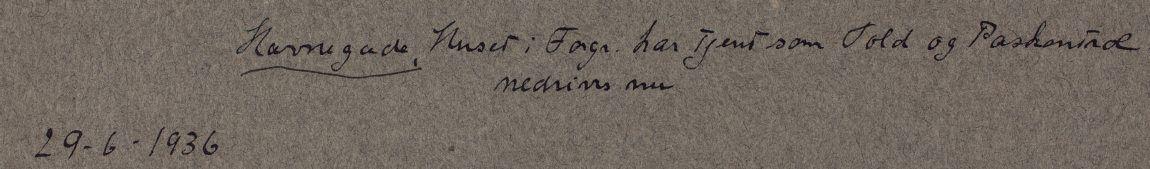 Havnegade, Huset i Forgr. har tjent som Told og Paskontrol
nedrives nu
29-6-1936